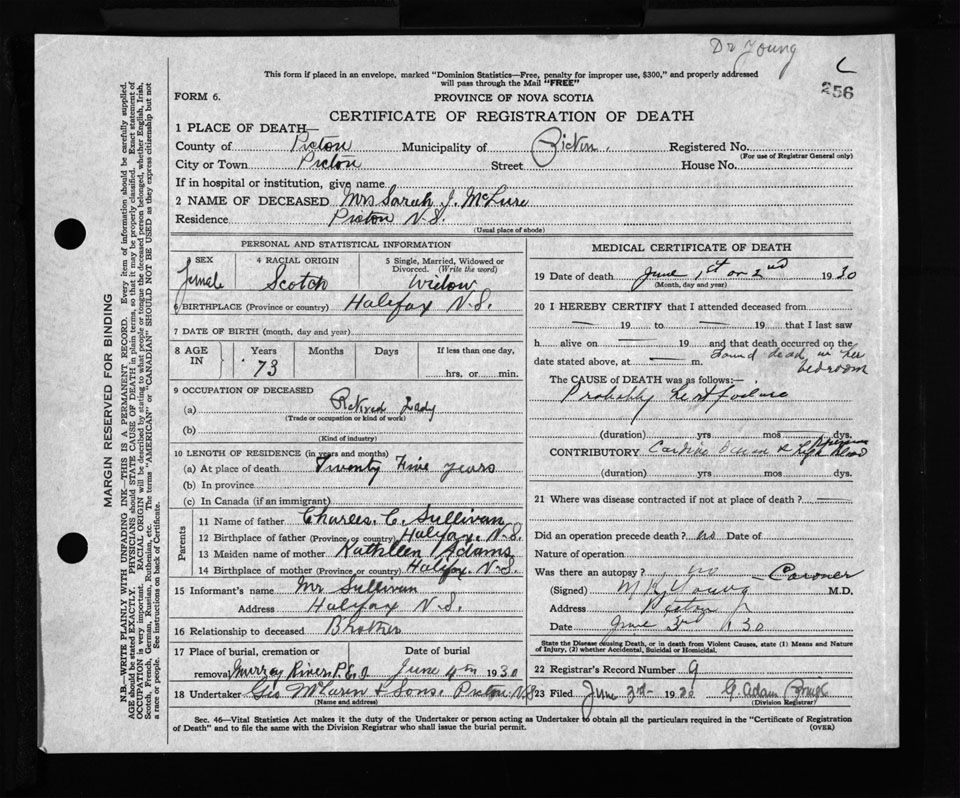 Dr Young
256
This form if placed in an envelope, marked "Dominion Statistics—Free, penalty for improper use, $300," and properly addressed
will pass through the Mail "FREE"
FORM 6.
PROVINCE OF NOVA SCOTIA
CERTIFICATE OF REGISTRATION OF DEATH
1 PLACE OF DEATH—
County of Pictou Municipality of Pictou Registered No.
(For use of Registrar General only)
City or Town Pictou Street House No.
If in hospital or institution, give name
2 NAME OF DECEASED Mrs Sarah J. McLure
Residence Pictou N.S.
(Usual place of abode)
PERSONAL AND STATISTICAL INFORMATION
3 SEX 4 RACIAL ORIGIN 5 Single, Married, Widowed or Divorced. (Write the word)
Female Scotch Widow
6 BIRTHPLACE (Province or country) Halifax N.S.
7 DATE OF BIRTH (month, day and year)
8 AGE IN Years Months Days If less than one day,
73 hrs. or min.
9 OCCUPATION OF DECEASED
(a) Retired Lady
(Trade or occupation or kind of work)
(b)
(Kind of industry)
10 LENGTH OF RESIDENCE (in years and months)
(a) At place of death Twenty Five years
(b) In province
(c) In Canada (if an immigrant)
Parents
11 Name of father Charles. C. Sullivan
12 Birthplace of father (Province or country) Halifax. N.S.
13 Maiden name of mother Kathleen Adams
14 Birthplace of mother (Province or country) Halifax. N.S.
15 Informant's name Mr Sullivan
Address Halifax N.S.
16 Relationship to deceased Brother
17 Place of burial, cremation or removal Date of burial
Murray River, P.E.I June 4th 1930
18 Undertaker Geo McLaren & Sons. Pictou N.S
(Name and address)
MEDICAL CERTIFICATE OF DEATH
19 Date of death June 1st or 2nd 1930
(Month, day and year)
20 I HEREBY CERTIFY that I attended deceased from
— 19 to — 19 that I last saw
h alive on — 19 and that death occurred on the
date stated above, at — m. found dead in her bedroom
The CAUSE of DEATH was as follows:
Probably heart failure
(duration) yrs mos dys.
CONTRIBUTORY Cardiac & High Blood
(duration) yrs mos dys.
21 Where was disease contracted if not at place of death?
Did an operation precede death? no Date of
Nature of operation
Was there an autopsy? no Coroner
(Signed) Young M.D.
Address Pictou
Date June 3rd 1930
State the Disease causing Death, or in death from Violent Causes, state (1) Means and Nature
of Injury, (2) whether Accidental, Suicidal or Homicidal.
22 Registrar's Record Number 9
23 Filed June 3rd 1930 G. Adam
(Division Registrar)
Sec. 46—Vital Statistics Act makes it the duty of the Undertaker or person acting as Undertaker to obtain all the particulars required in the "Certificate of Registration
of Death" and to file the same with the Division Registrar who shall issue the burial permit.
(OVER)
MARGIN RESERVED FOR BINDING
N.B.—WRITE PLAINLY WITH UNFADING INK—THIS IS A PERMANENT RECORD. Every item of information should be carefully supplied.
AGE should be stated EXACTLY. PHYSICIANS should STATE CAUSE OF DEATH in plain terms, so that it may be properly classified. Exact statement of
OCCUPATION is very important. RACIAL ORIGIN will be described by stating to what people or tongue the deceased person belonged, whether English, Irish,
Scotch, French, German, Russian, Ruthenian, etc. The terms "AMERICAN" or "CANADIAN" SHOULD NOT BE USED as they express citizenship but not
a race or people. See instructions on back of Certificate.